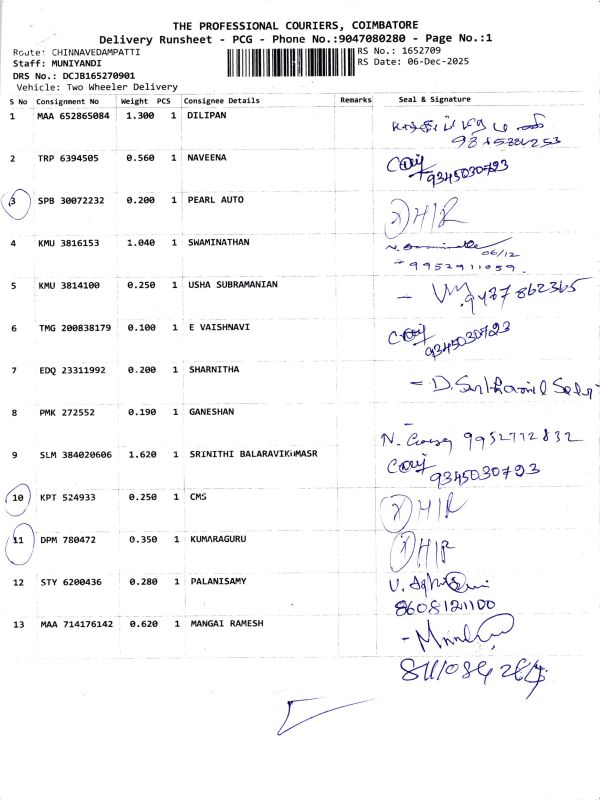 THE PROFESSIONAL COURIERS, COIMBATORE
Delivery Runsheet - PCG - Phone No.:9047080280 - Page No.:1
Route: CHINNAVEDAMPATTI
RS No.: 1652709
Staff: MUNIYANDI
RS Date: 06-Dec-2025
DRS No.: DCJB165270901
Vehicle: Two Wheeler Delivery
S No Consignment No Weight PCS Consignee Details Remarks Seal & Signature
1 MAA 652865084 1.300 1 DILIPAN
2 TRP 6394505 0.560 1 NAVEENA
9345030793
3 SPB 30072232 0.200 1 PEARL AUTO
4 KMU 3816153 1.040 1 SWAMINATHAN
06/12
9952911059
5 KMU 3814100 0.250 1 USHA SUBRAMANIAN
6 TMG 200838179 0.100 1 E VAISHNAVI
9345030793
7 EDQ 23311992 0.200 1 SHARNITHA
8 PMK 272552 0.190 1 GANESHAN
9952772832
9 SLM 384020606 1.620 1 SRINITHI BALARAVIKUMASR
9345030793
10 KPT 524933 0.250 1 CMS
11 DPM 780472 0.350 1 KUMARAGURU
12 STY 6200436 0.280 1 PALANISAMY
8608121100
13 MAA 714176142 0.620 1 MANGAI RAMESH